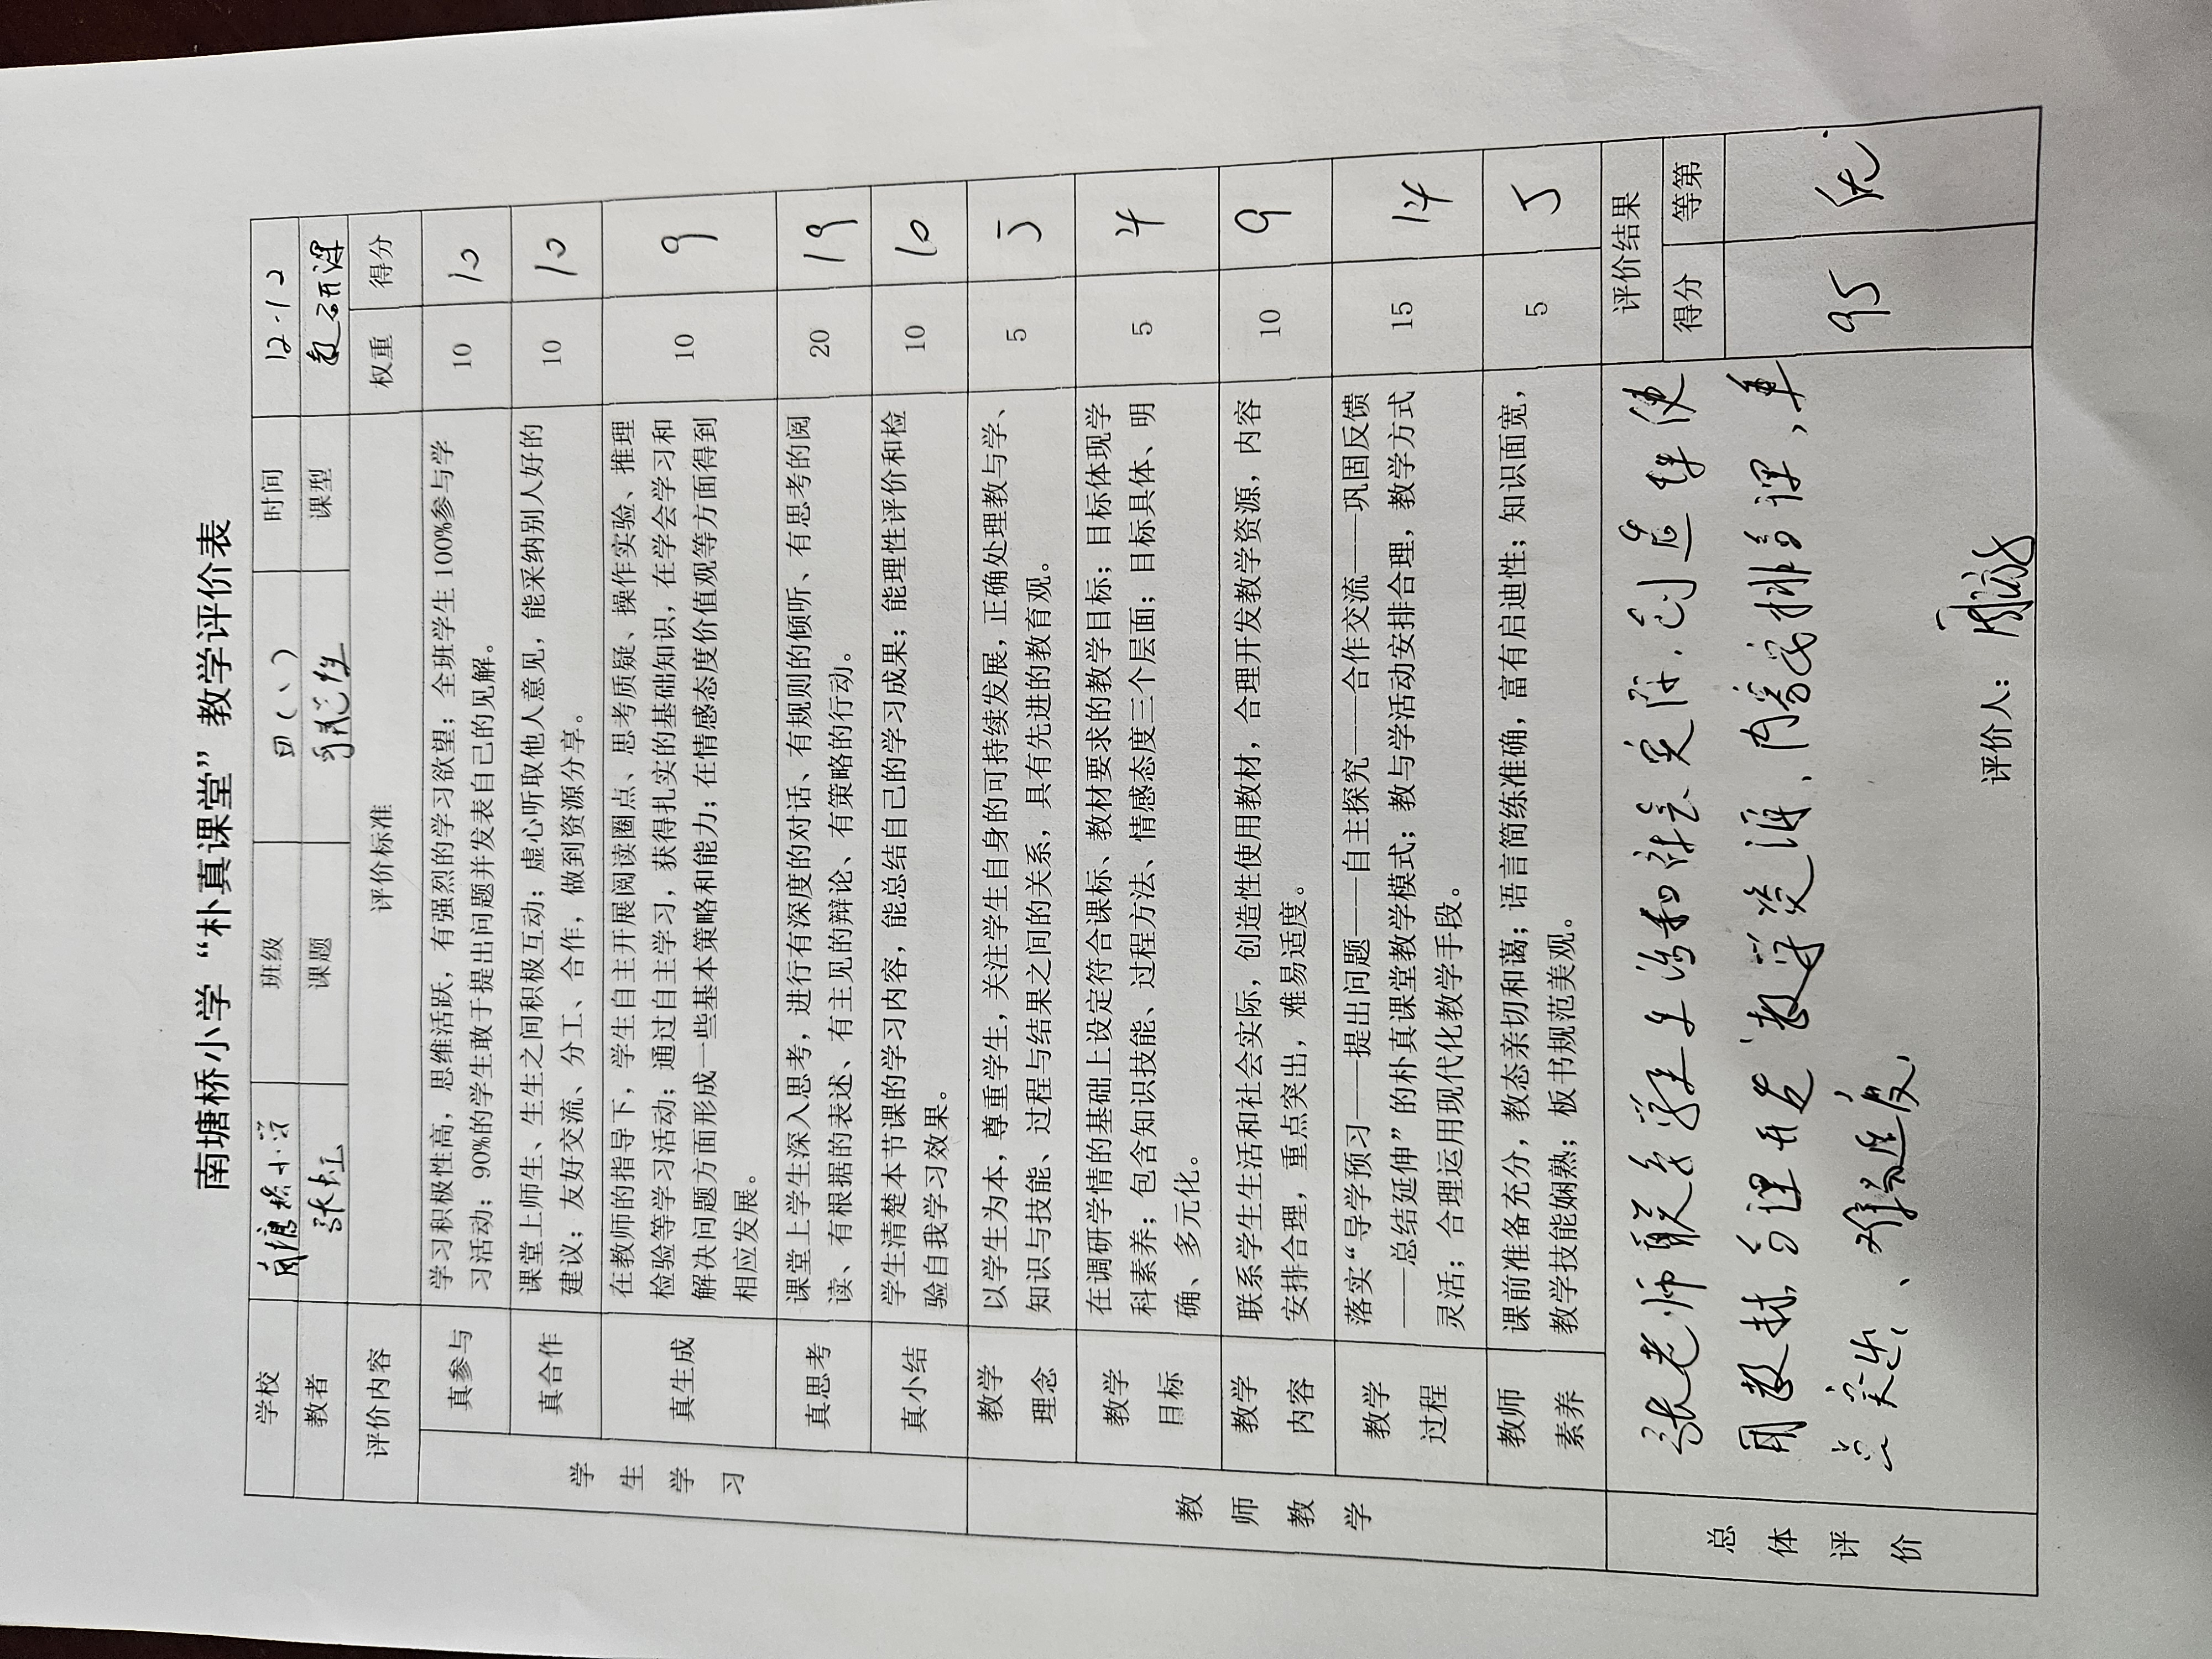 南塘桥小学“朴真课堂”教学评价表
学校 南塘桥小学 班级 四(1) 时间 12.12
教者 张虹 课题 课型
评价内容 评价标准 权重 得分
学生学习
真参与 学习积极性高，思维活跃，有强烈的学习欲望；全班学生100%参与学 10 10
习活动；90%的学生敢于提出问题并发表自己的见解。
真合作 课堂上师生、生生之间积极互动；虚心听取他人意见，能采纳别人好的 10 10
建议；友好交流、分工、合作，做到资源分享。
真生成 在教师的指导下，学生自主开展阅读圈点、思考质疑、操作实验、推理 10 9
检验等学习活动；通过自主学习，获得扎实的基础知识，在学会学习和
解决问题方面形成一些基本策略和能力；在情感态度价值观等方面得到
相应发展。
真思考 课堂上学生深入思考，进行有深度的对话、有规则的倾听、有思考的阅 20 19
读、有根据的表述、有主见的辩论、有策略的行动。
真小结 学生清楚本节课的学习内容，能总结自己的学习成果；能理性评价和检 10 10
验自我学习效果。
教师教学
教学理念 以学生为本，尊重学生，关注学生自身的可持续发展，正确处理教与学、 5 5
知识与技能、过程与结果之间的关系，具有先进的教育观。
教学目标 在调研学情的基础上设定符合课标、教材要求的教学目标；目标体现学 5 4
科素养；包含知识技能、过程方法、情感态度三个层面；目标具体、明
确、多元化。
教学内容 联系学生生活和社会实际，创造性使用教材，合理开发教学资源，内容 10 9
安排合理，重点突出，难易适度。
教学过程 落实“导学预习——提出问题——自主探究——合作交流——巩固反馈 15 14
——总结延伸”的朴真课堂教学模式；教与学活动安排合理，教学方式
灵活；合理运用现代化教学手段。
教师素养 课前准备充分，教态亲切和蔼；语言简练准确，富有启迪性；知识面宽， 5 5
教学技能娴熟；板书规范美观。
总体评价 评价结果
得分 等第
95 优
张老师联系学生生活和社会实际，创造性使
用教材，合理开发教学资源，内容安排合理，重
点突出、难易适度。
评价人：